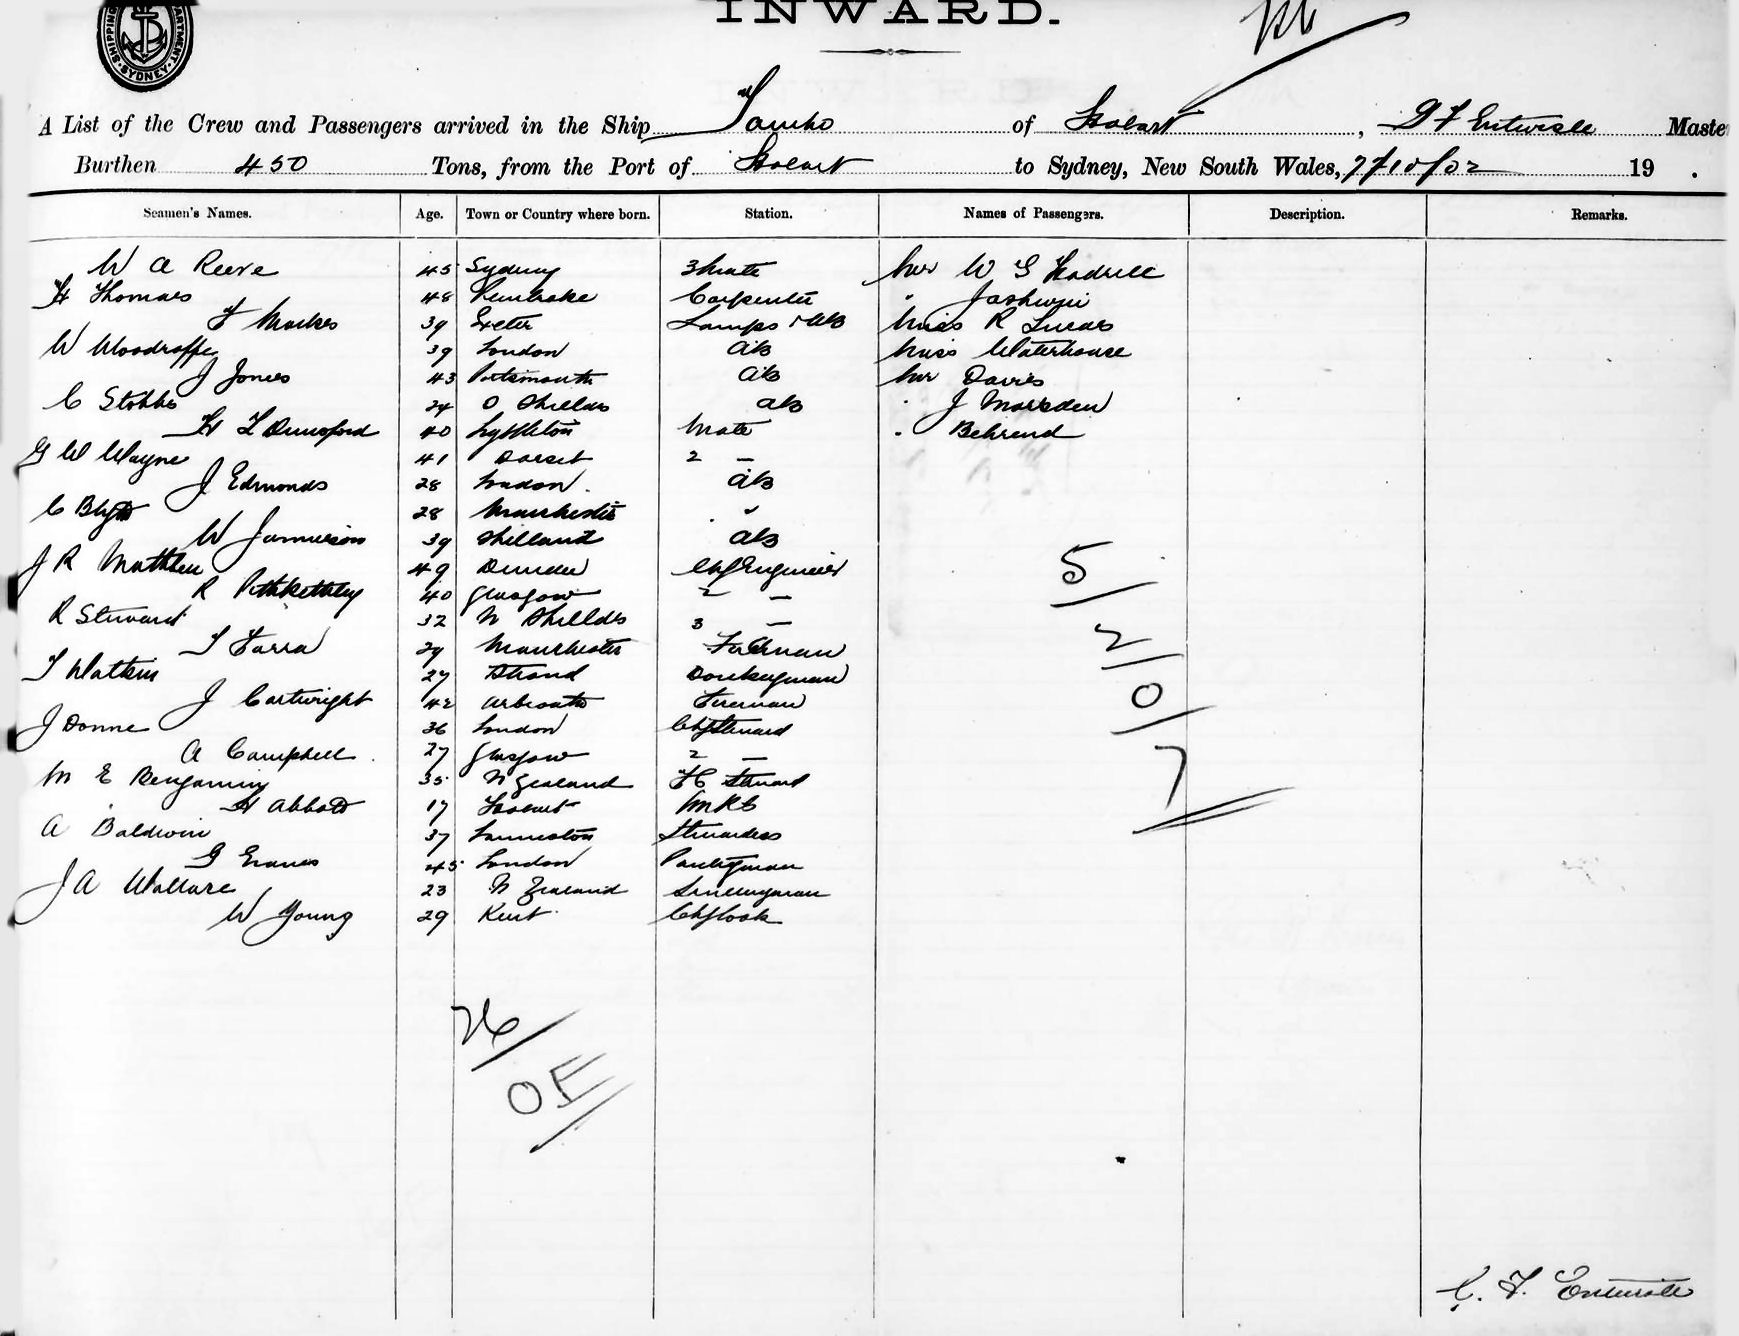 INWARD.
SHIPPING DEPARTMENT SYDNEY
A List of the Crew and Passengers arrived in the Ship Tambo of Hobart, G F Entwisle Master
Burthen 450 Tons, from the Port of Hobart to Sydney, New South Wales, 7/10/02 19 .
Seamen's Names. Age. Town or Country where born. Station. Names of Passengers. Description. Remarks.
W A Reeve 45 Sydney 3 Mate Mr W G Hadrill
H Thomas 48 Pembroke Carpenter "
F Markes 39 Exeter Lamps & AB Miss R Lucas
W Woodroffe 39 London AB Miss Waterhouse
J Jones 43 Portsmouth AB Mr Davies
C Stobbs 24 Shields AB " J Marsden
H L Dunsford 40 Lyttleton Mate " Behrend
G W Wayne 41 Dorset 2 —
J Edmonds 28 London. AB
C Blyth 28 Manchester "
W Jamieson 39 Shetland AB
J R Mathew 49 Dundee Chf Engineer
R Pitkethley 40 Glasgow 2 —
R Steward 32 N Shields 3 —
T Farra 29 Manchester Fireman
T Watkin 27 Strand Donkeyman
J Cartwright 42 Arbroath Fireman
J Donne 36 London Chf Steward
A Campbell 27 Glasgow 2 —
M E Benjamin 35 N Zealand FC Steward
H Abbott 17 Hobart
A Baldwin 37 Launceston Stewardess
G Evans 45 London Pantryman
J A Wallace 23 N Zealand
W Young 29 Kent Chf Cook
5/
2/
0/
7
26/
OE
G. F. Entwisle